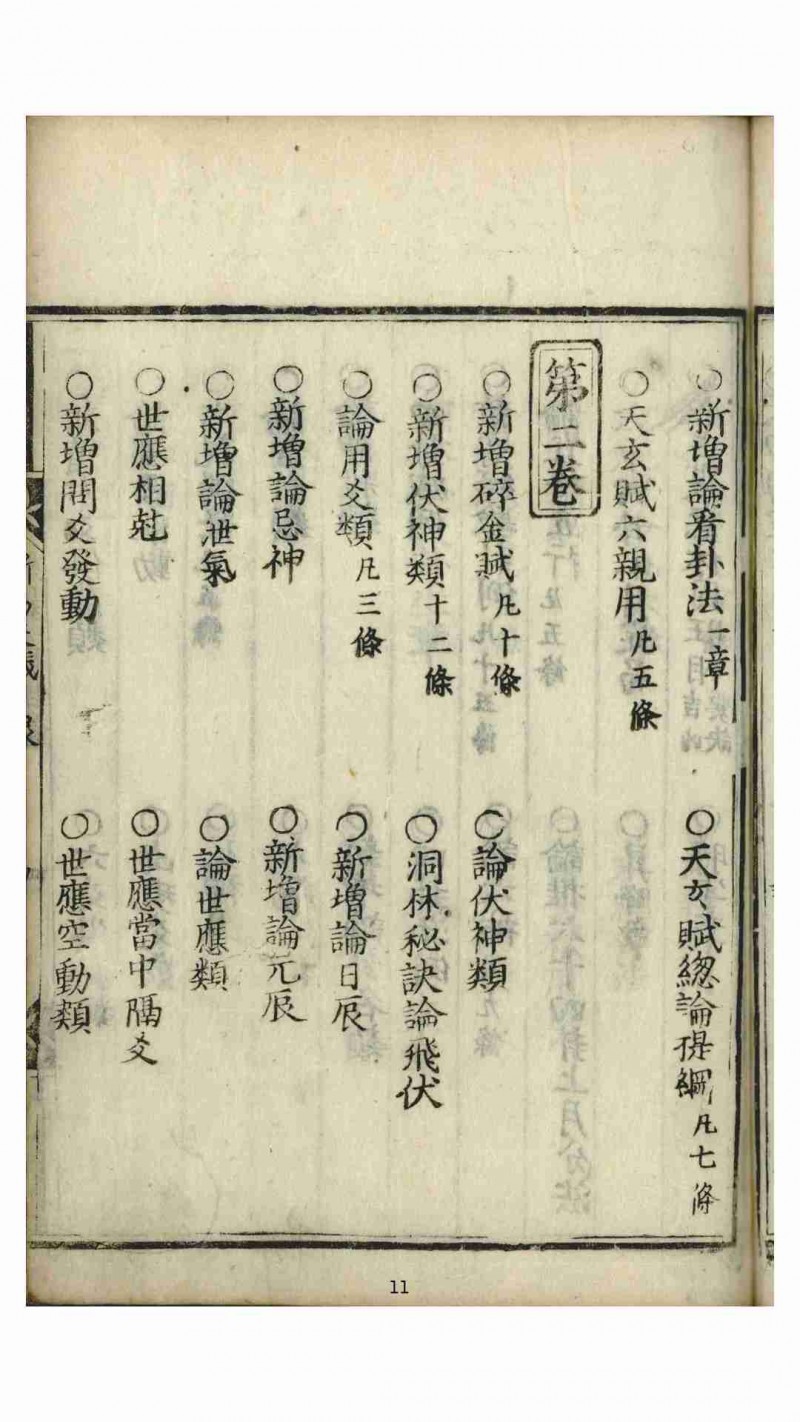 ○新增論看卦法一章
○天玄賦總論提綱凡七條
○天玄賦六親用凡五條
第二卷
○新增碎金賦凡十條
○論伏神類
○新增伏神類十二條
○洞林秘訣論飛伏
○論用爻類凡三條
○新增論日辰
○新增論忌神
○新增論元辰
○新增論泄氣
○論世應類
○世應相尅
○世應當中隔爻
○新增間爻發動
○世應空動類
11